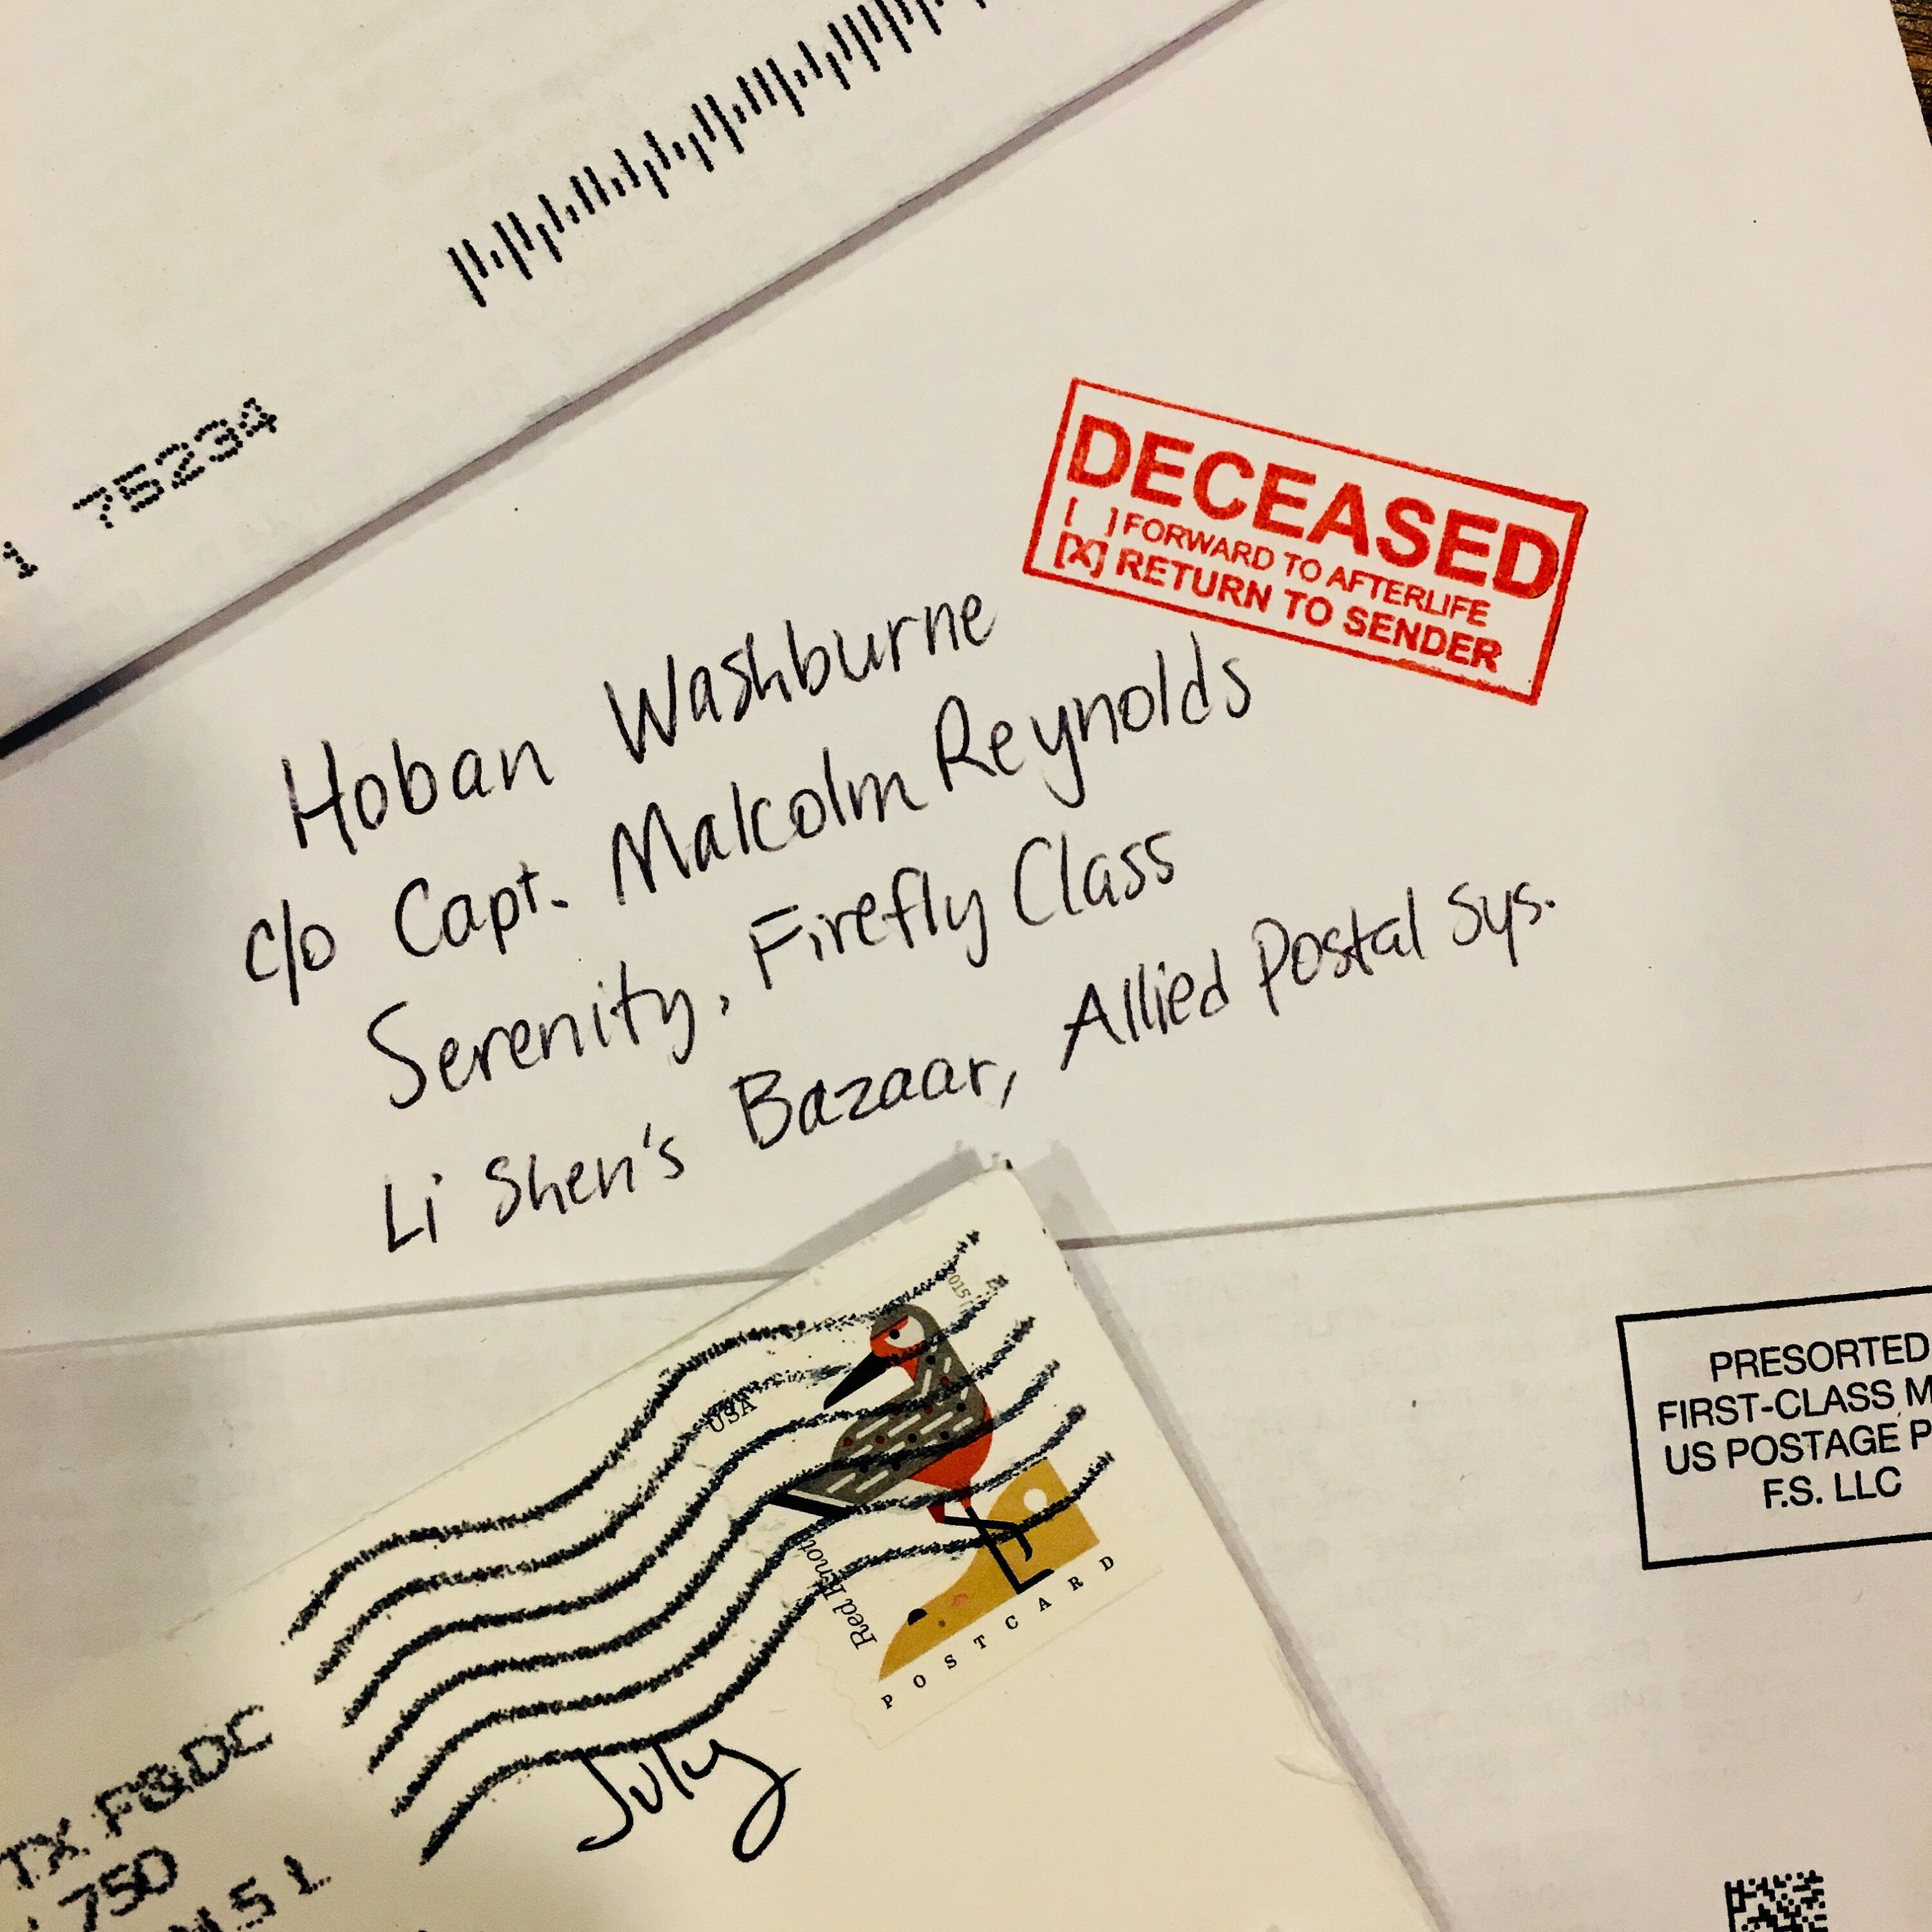 1 75234
DECEASED
[ ] FORWARD TO AFTERLIFE
[X] RETURN TO SENDER
Hoban Washburne
c/o Capt. Malcolm Reynolds
Serenity, Firefly Class
Li Shen's Bazaar, Allied Postal Sys.
2015
USA
Red Knot
POSTCARD
July
TX P&DC
750
5 L
PRESORTED
FIRST-CLASS M
US POSTAGE P
F.S. LLC